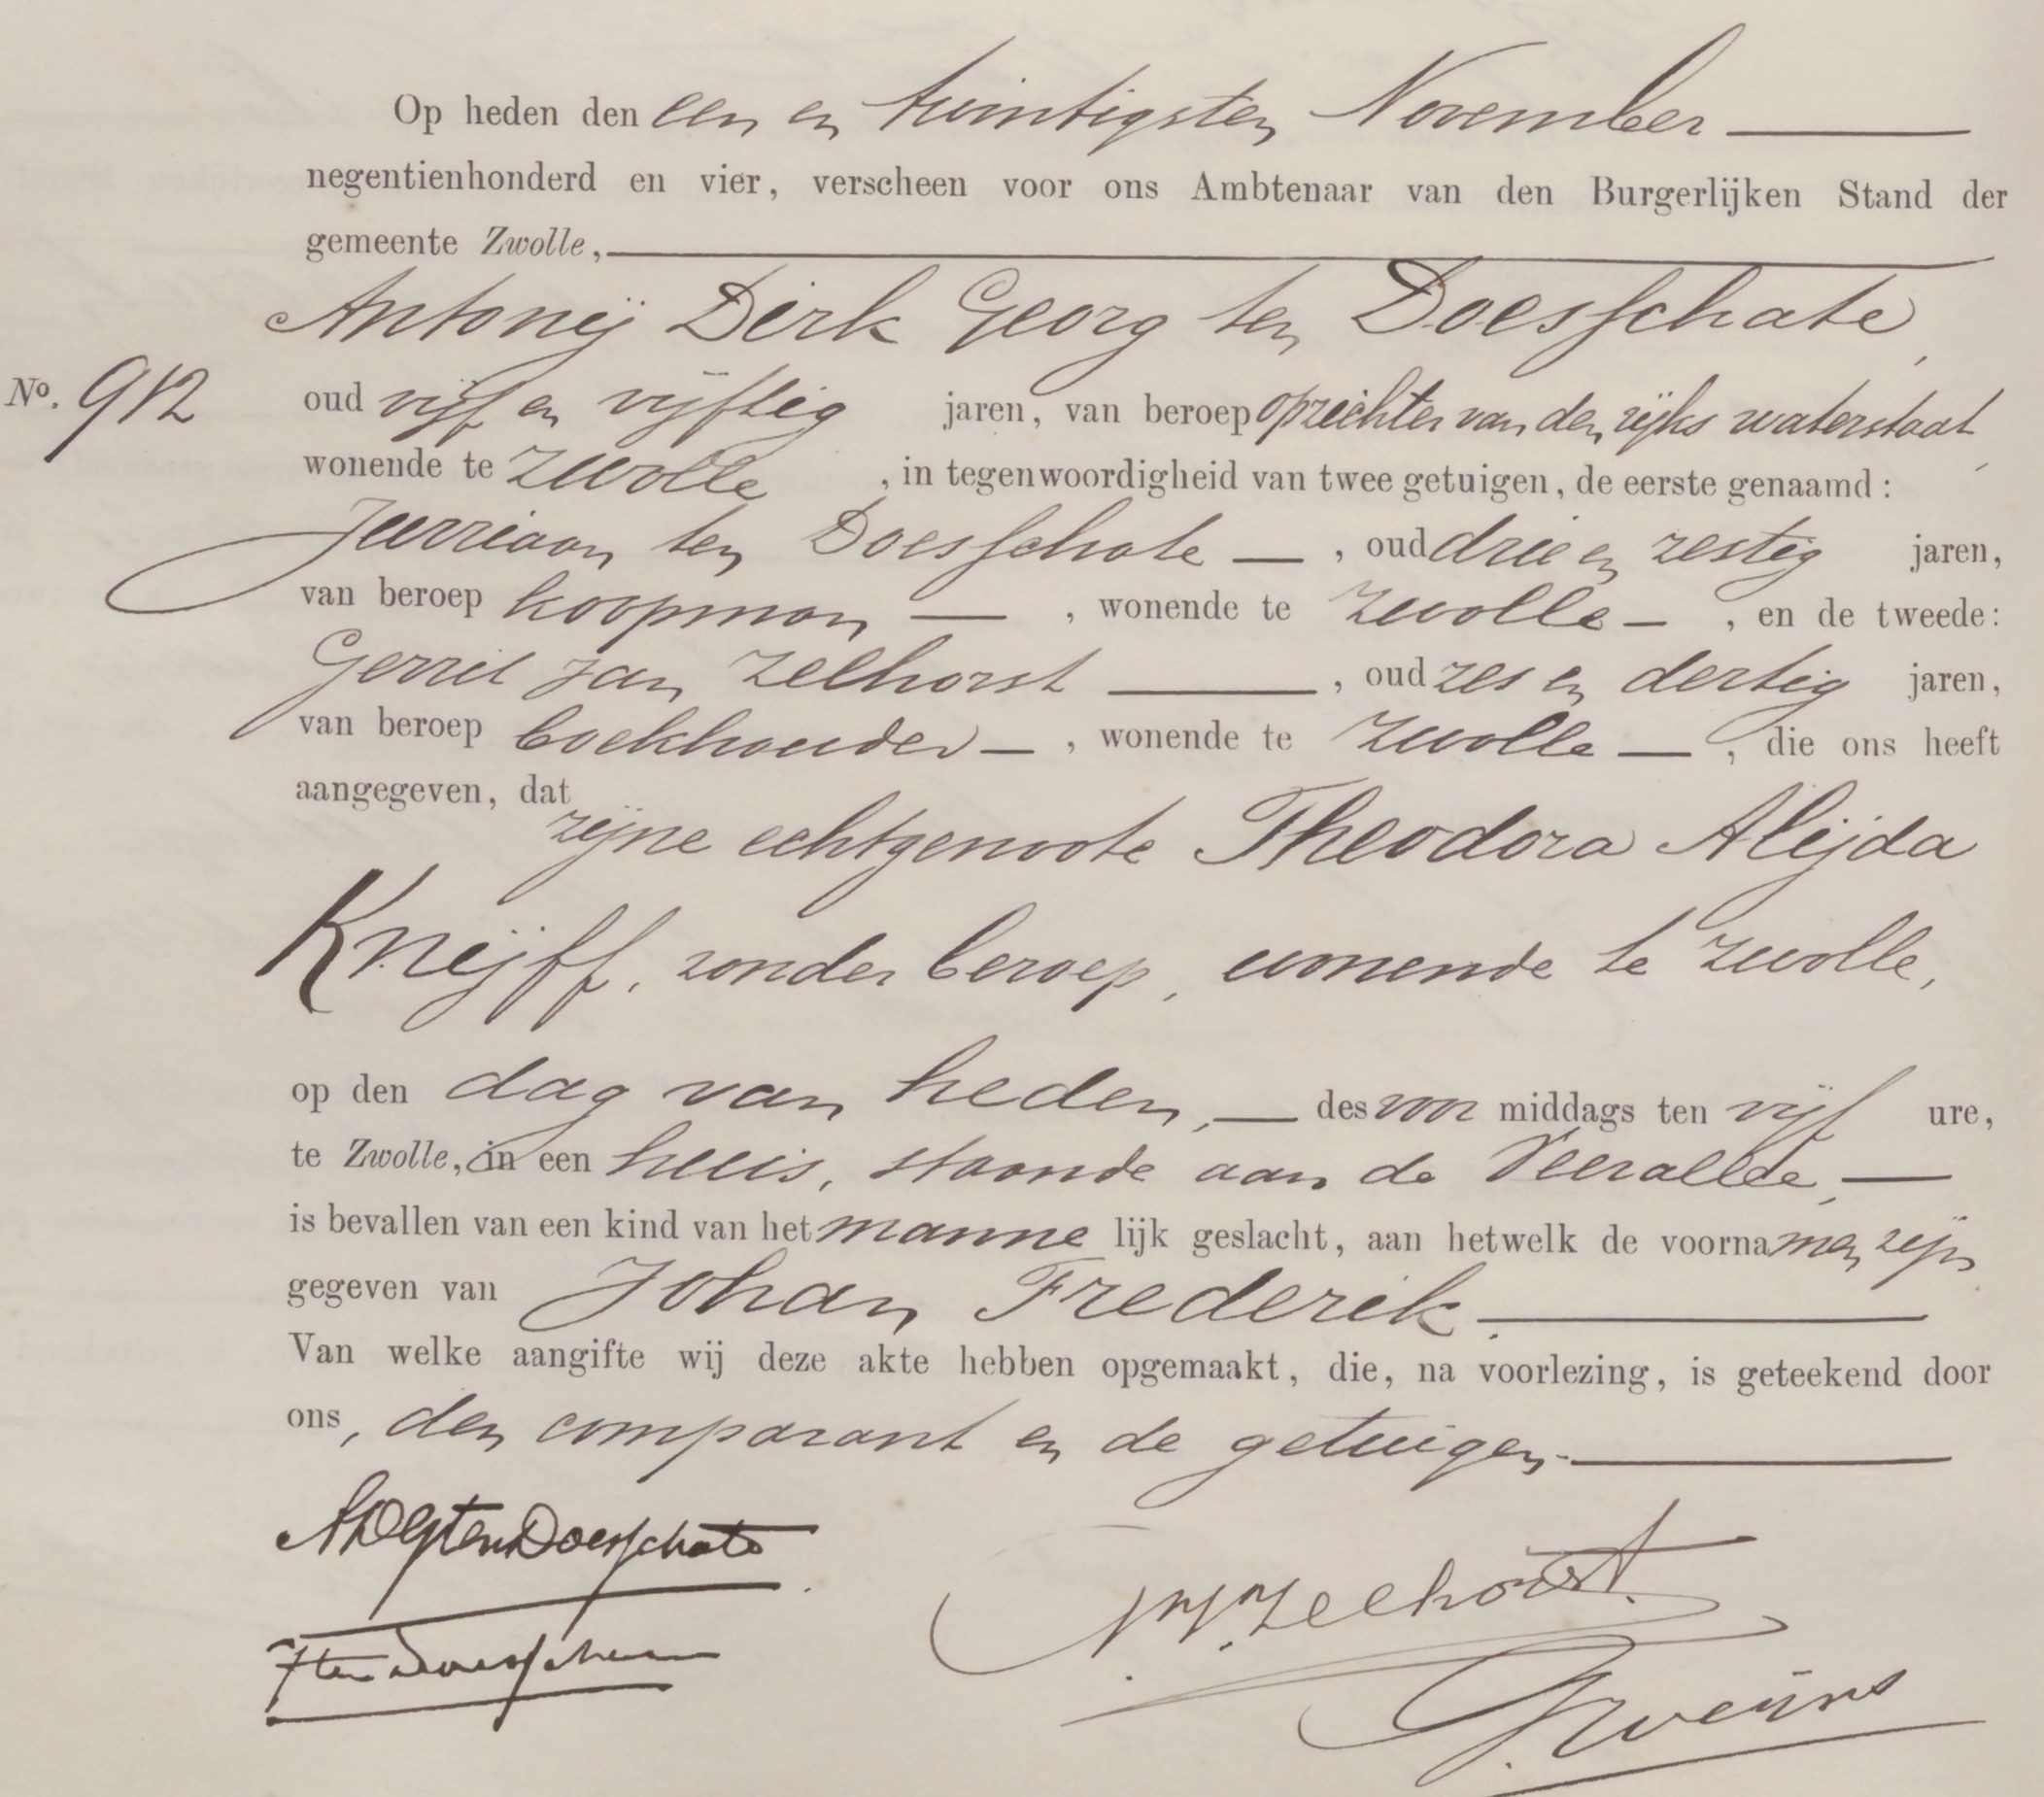 Op heden den een en twintigsten November
negentienhonderd en vier, verscheen voor ons Ambtenaar van den Burgerlijken Stand der
gemeente Zwolle,
Antonij Dirk Georg ten Doesschate,
No. 912 oud vijf en vijftig jaren, van beroep opzichter van den rijks waterstaat,
wonende te Zwolle, in tegenwoordigheid van twee getuigen, de eerste genaamd:
Jurriaan ten Doesschate —, oud drie en zestig jaren,
van beroep koopman —, wonende te Zwolle —, en de tweede:
Gerrit Jan Zelhorst —, oud zes en dertig jaren,
van beroep boekhouder —, wonende te Zwolle —, die ons heeft
aangegeven, dat
zijne echtgenoote Theodora Alijda
Kneijff, zonder beroep, wonende te Zwolle,
op den dag van heden, — des voor middags ten vijf ure,
te Zwolle, in een huis, staande aan de Veerallee, —
is bevallen van een kind van het manne lijk geslacht, aan hetwelk de voornamen zijn
gegeven van Johan Frederik.
Van welke aangifte wij deze akte hebben opgemaakt, die, na voorlezing, is geteekend door
ons, den comparant en de getuigen.
ADG ten Doesschate
J ten Doesschate
Zelhorst